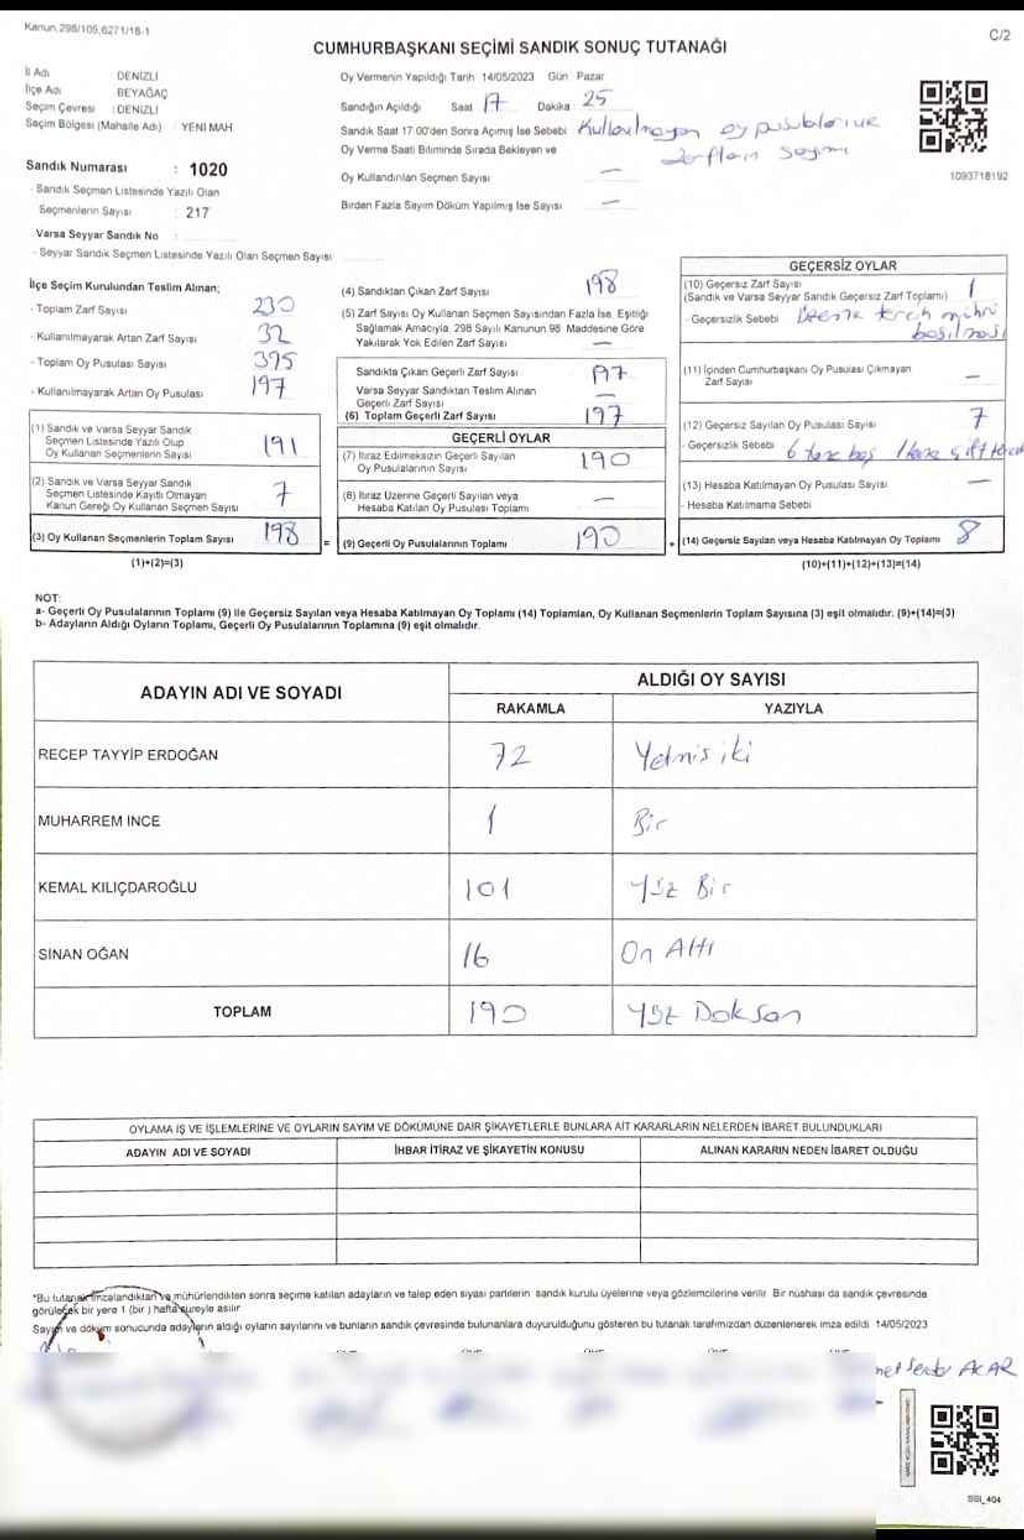 Kanun.298/105,6271/18-1
C/2
CUMHURBAŞKANI SEÇİMİ SANDIK SONUÇ TUTANAĞI
İl Adı DENİZLİ
İlçe Adı BEYAĞAÇ
Seçim Çevresi : DENİZLİ
Seçim Bölgesi (Mahalle Adı) YENİ MAH.
Sandık Numarası : 1020
- Sandık Seçmen Listesinde Yazılı Olan
Seçmenlerin Sayısı : 217
Varsa Seyyar Sandık No :
- Seyyar Sandık Seçmen Listesinde Yazılı Olan Seçmen Sayısı
Oy Vermenin Yapıldığı Tarih 14/05/2023 Gün Pazar
Sandığın Açıldığı Saat 17 Dakika 25
Sandık Saat 17:00'den Sonra Açımış İse Sebebi Kullanılmayan oy pusublarıue
Oy Verme Saati Bitiminde Sırada Bekleyen ve zarfların sayımı
Oy Kullandırılan Seçmen Sayısı —
Birden Fazla Sayım Döküm Yapılmış İse Sayısı —
1093718192
İlçe Seçim Kurulundan Teslim Alınan;
- Toplam Zarf Sayısı 230
- Kullanılmayarak Artan Zarf Sayısı 32
- Toplam Oy Pusulası Sayısı 395
- Kullanılmayarak Artan Oy Pusulası 197
(1) Sandık ve Varsa Seyyar Sandık
Seçmen Listesinde Yazılı Olup
Oy Kullanan Seçmenlerin Sayısı 191
(2) Sandık ve Varsa Seyyar Sandık
Seçmen Listesinde Kayıtlı Olmayan
Kanun Gereği Oy Kullanan Seçmen Sayısı 7
(3) Oy Kullanan Seçmenlerin Toplam Sayısı 198
(1)+(2)=(3)
(4) Sandıktan Çıkan Zarf Sayısı 198
(5) Zarf Sayısı Oy Kullanan Seçmen Sayısından Fazla İse, Eşitliği
Sağlamak Amacıyla, 298 Sayılı Kanunun 98. Maddesine Göre
Yakılarak Yok Edilen Zarf Sayısı —
Sandıkta Çıkan Geçerli Zarf Sayısı 197
Varsa Seyyar Sandıktan Teslim Alınan
Geçerli Zarf Sayısı —
(6) Toplam Geçerli Zarf Sayısı 197
GEÇERLİ OYLAR
(7) İtiraz Edilmeksizin Geçerli Sayılan
Oy Pusulalarının Sayısı 190
(8) İtiraz Üzerine Geçerli Sayılan veya
Hesaba Katılan Oy Pusulası Toplamı —
= (9) Geçerli Oy Pusulalarının Toplamı 190 +
GEÇERSİZ OYLAR
(10) Geçersiz Zarf Sayısı 1
(Sandık ve Varsa Seyyar Sandık Geçersiz Zarf Toplamı)
- Geçersizlik Sebebi Üzerine tercih mührü
basılması
(11) İçinden Cumhurbaşkanı Oy Pusulası Çıkmayan
Zarf Sayısı —
(12) Geçersiz Sayılan Oy Pusulası Sayısı 7
- Geçersizlik Sebebi 6 tane boş 1 tane çift tercih
(13) Hesaba Katılmayan Oy Pusulası Sayısı —
- Hesaba Katılmama Sebebi
(14) Geçersiz Sayılan veya Hesaba Katılmayan Oy Toplamı 8
(10)+(11)+(12)+(13)=(14)
NOT:
a- Geçerli Oy Pusulalarının Toplamı (9) ile Geçersiz Sayılan veya Hesaba Katılmayan Oy Toplamı (14) Toplamları, Oy Kullanan Seçmenlerin Toplam Sayısına (3) eşit olmalıdır. (9)+(14)=(3)
b- Adayların Aldığı Oyların Toplamı, Geçerli Oy Pusulalarının Toplamına (9) eşit olmalıdır.
ADAYIN ADI VE SOYADI ALDIĞI OY SAYISI
RAKAMLA YAZIYLA
RECEP TAYYİP ERDOĞAN 72 Yetmiş iki
MUHARREM İNCE 1 Bir
KEMAL KILIÇDAROĞLU 101 Yüz Bir
SİNAN OĞAN 16 On Altı
TOPLAM 190 Yüz Doksan
OYLAMA İŞ VE İŞLEMLERİNE VE OYLARIN SAYIM VE DÖKÜMÜNE DAİR ŞİKAYETLERLE BUNLARA AİT KARARLARIN NELERDEN İBARET BULUNDUKLARI
ADAYIN ADI VE SOYADI İHBAR İTİRAZ VE ŞİKAYETİN KONUSU ALINAN KARARIN NEDEN İBARET OLDUĞU
*Bu tutanak imzalandıktan ve mühürlendikten sonra seçime katılan adayların ve talep eden siyasi partilerin sandık kurulu üyelerine veya gözlemcilerine verilir. Bir nüshası da sandık çevresinde
görülecek bir yere 1 (bir) hafta süreyle asılır.
Sayım ve döküm sonucunda adayların aldığı oyların sayılarını ve bunların sandık çevresinde bulunanlara duyurulduğunu gösteren bu tutanak tarafımızdan düzenlenerek imza edildi. 14/05/2023
ACAR
SBI_404